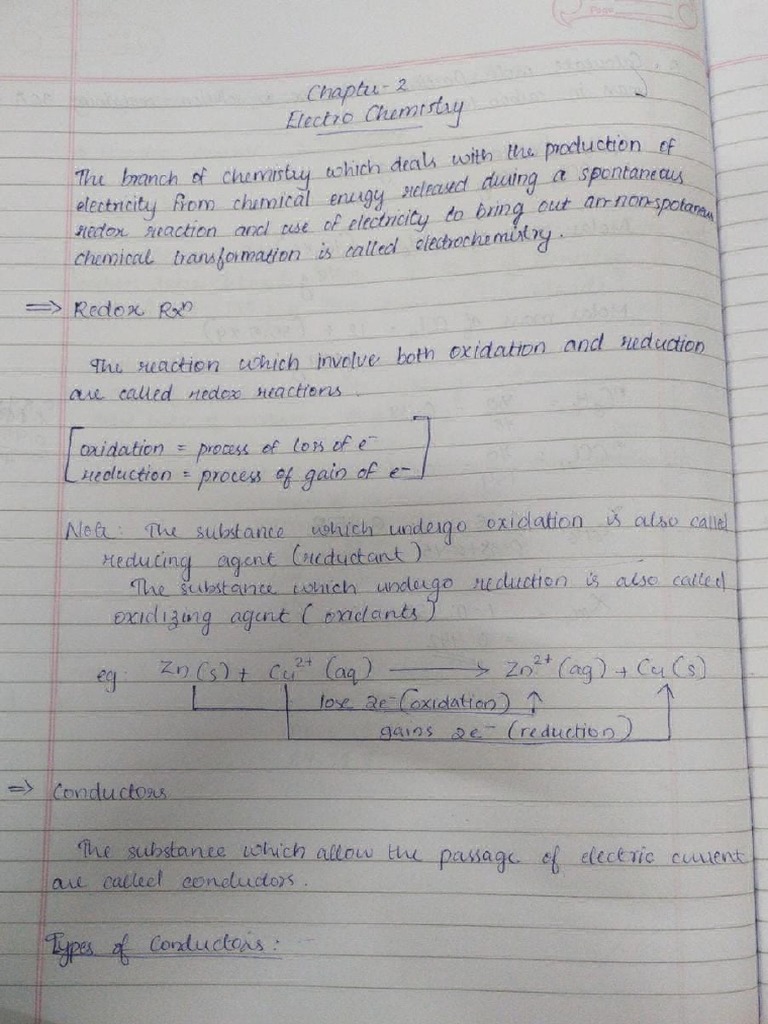 Chapter-2
Electro Chemistry
The branch of chemistry which deals with the production of
electricity from chemical energy released during a spontaneous
redox reaction and use of electricity to bring out an non-spotaneous
chemical transformation is called electrochemistry.
⇒ Redox Rxⁿ
The reaction which involve both oxidation and reduction
are called redox reactions.
[oxidation = process of loss of e⁻
reduction = process of gain of e⁻]
Note: The substance which undergo oxidation is also called
reducing agent (reductant)
The substance which undergo reduction is also called
oxidizing agent (oxidants)
eg: Zn(s) + Cu²⁺ (aq) ⟶ Zn²⁺ (aq) + Cu(s)
lose 2e⁻ (oxidation) ↑
gains 2e⁻ (reduction)
⇒ Conductors
The substance which allow the passage of electric current
are called conductors.
Types of Conductors: